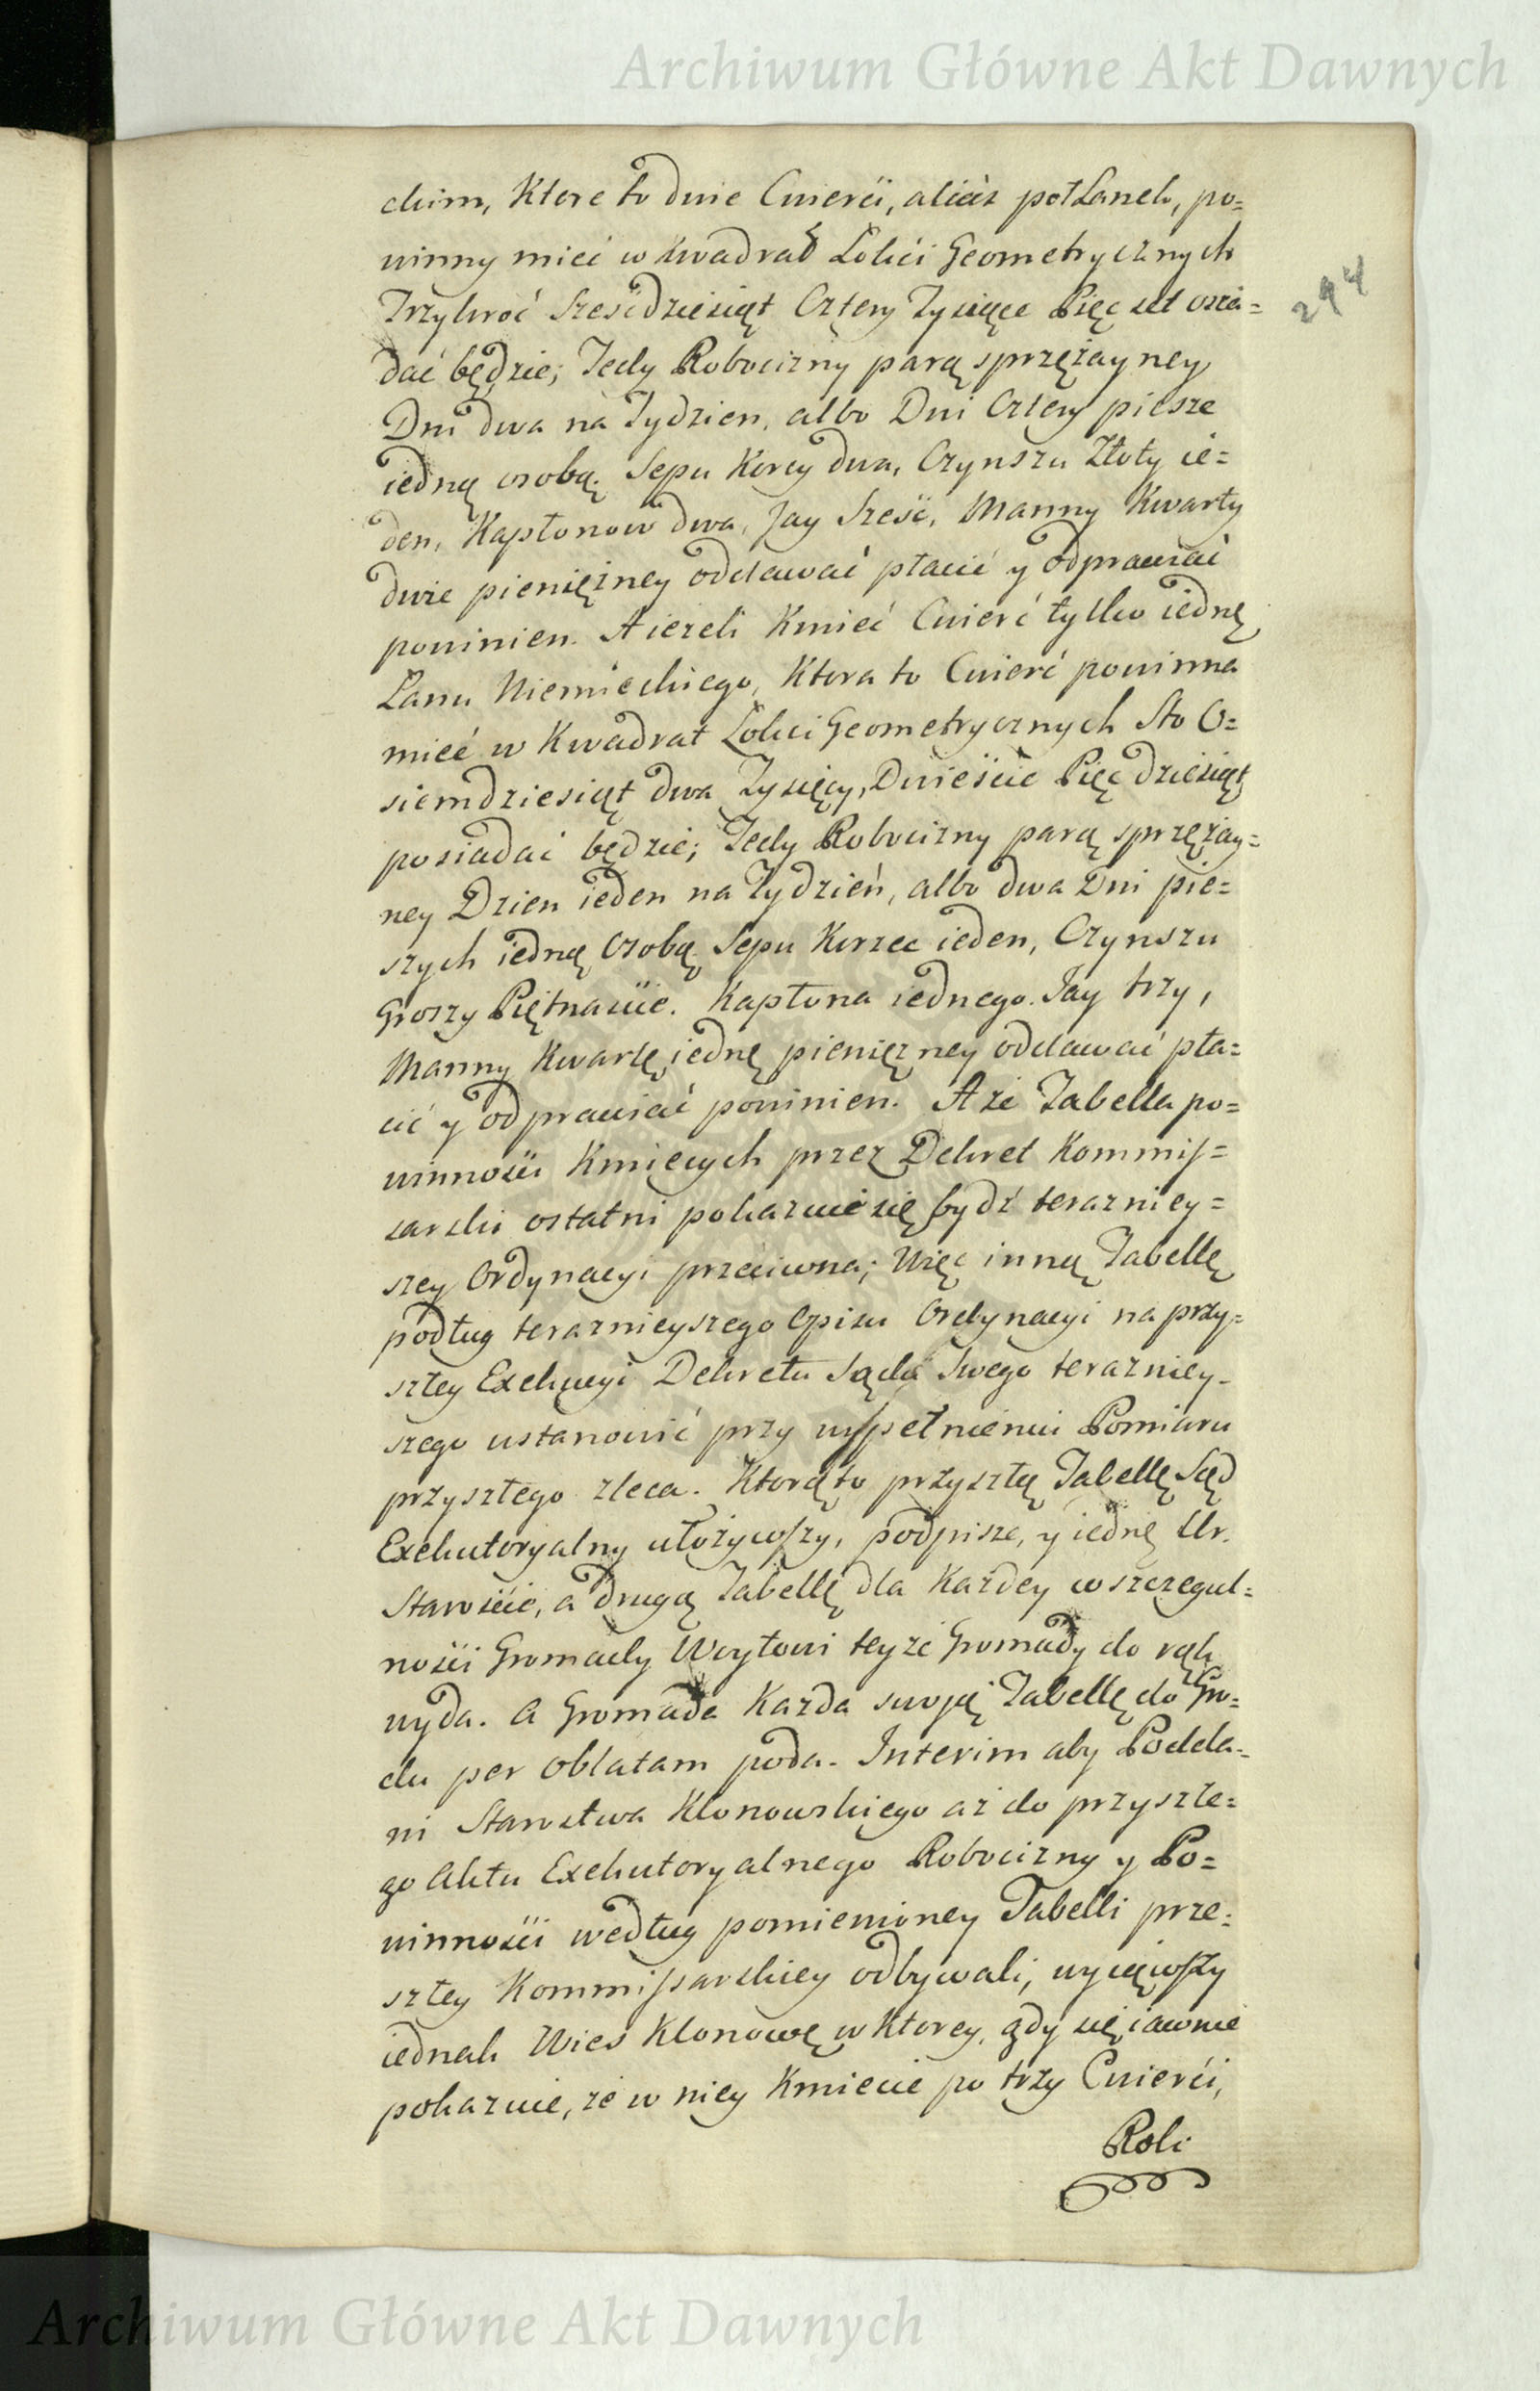 Archiwum Główne Akt Dawnych
ckim, Ktore to dwie Cwierci, alias poł Lanek, po=
winny mieć w Kwadrat Łokci Geometrycznych
Trzykroć Sześćdziesiąt Cztery Tysiące Pięć set osia=
dać będzie; Tedy Robocizny parą sprzężayney
Dni dwa na Tydzien, albo Dni Cztery piesze
iedną osobą. Sepu Korcy dwa, Czynszu Złoty ie=
den, Kapłonow dwa, Jay Sześć, Manny Kwarty
dwie pienięźney oddawać płacić y odprawiać
powinien. A ieżeli Kmieć Cwierć tylko iednę
Łanu Niemieckiego, Ktora to Cwierć powinna
mieć w Kwadrat Łokci Geometrycznych Sto O=
siemdziesiąt dwa Tysięcy, Dwieście Pięćdziesiąt
posiadać będzie; Tedy Robocizny parą sprzężay=
ney Dzien ieden na Tydzień, albo dwa Dni pie=
szych iedną Osobą. Sepu Korzec ieden, Czynszu
Groszy Piętnaście. Kapłona iednego. Jay trzy,
Manny Kwartę iednę pienięzney oddawać pła=
cić y odprawiać powinien. A że Tabella po=
winności Kmiecych przez Dekret Kommis=
sarski ostatni pokazuie się bydź terazniey=
szey Ordynacyi przeciwna; Więc inną Tabellę
podług teraznieyszego Opisu Ordynacyi na przy=
szłey Exekucyi Dekretu Sądu Swego terazniey-
szego ustanowić przy uspełnieniu Pomiaru
przyszłego zleca. Ktorą to przyszłą Tabellę Sąd
Exekutoryalny ułożywszy, podpisze, y iednę Ur.
Staroście, a drugą Tabellę dla Kazdey w szczegul=
ności Gromady Woytowi teyże Gromady do rąk
wyda. A Gromada Kazda swoję Tabellę do Gro=
du per Oblatam poda. Interim aby Podda=
ni Starostwa Klonowskiego aż do przyszłe=
go Aktu Exekutoryalnego Robocizny y Po=
winności według pomienioney Tabelli prze=
szłey Kommissarskiey odbywali, wyiąwszy
iednak Wies Klonowę w Ktorey, gdy się iawnie
pokazuie, że w niey Kmiecie po trzy Cwierci,
Roli
294
Archiwum Główne Akt Dawnych